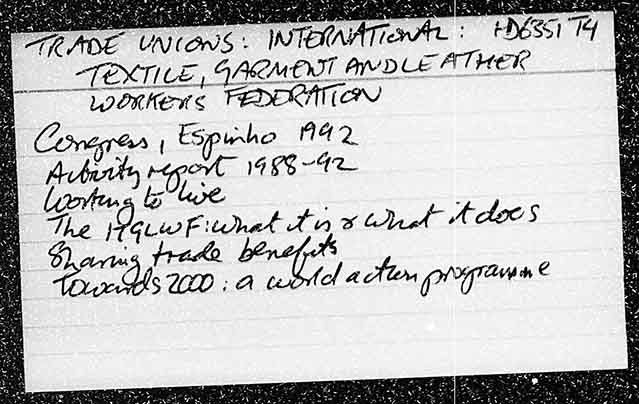 TRADE UNIONS: INTERNATIONAL: HD6351 T4
TEXTILE, GARMENT AND LEATHER
WORKERS FEDERATION
Congress, Espinho 1992
Activity report 1988-92
Working to live
The ITGLWF: what it is & what it does
Sharing trade benefits
Towards 2000: a world action programme